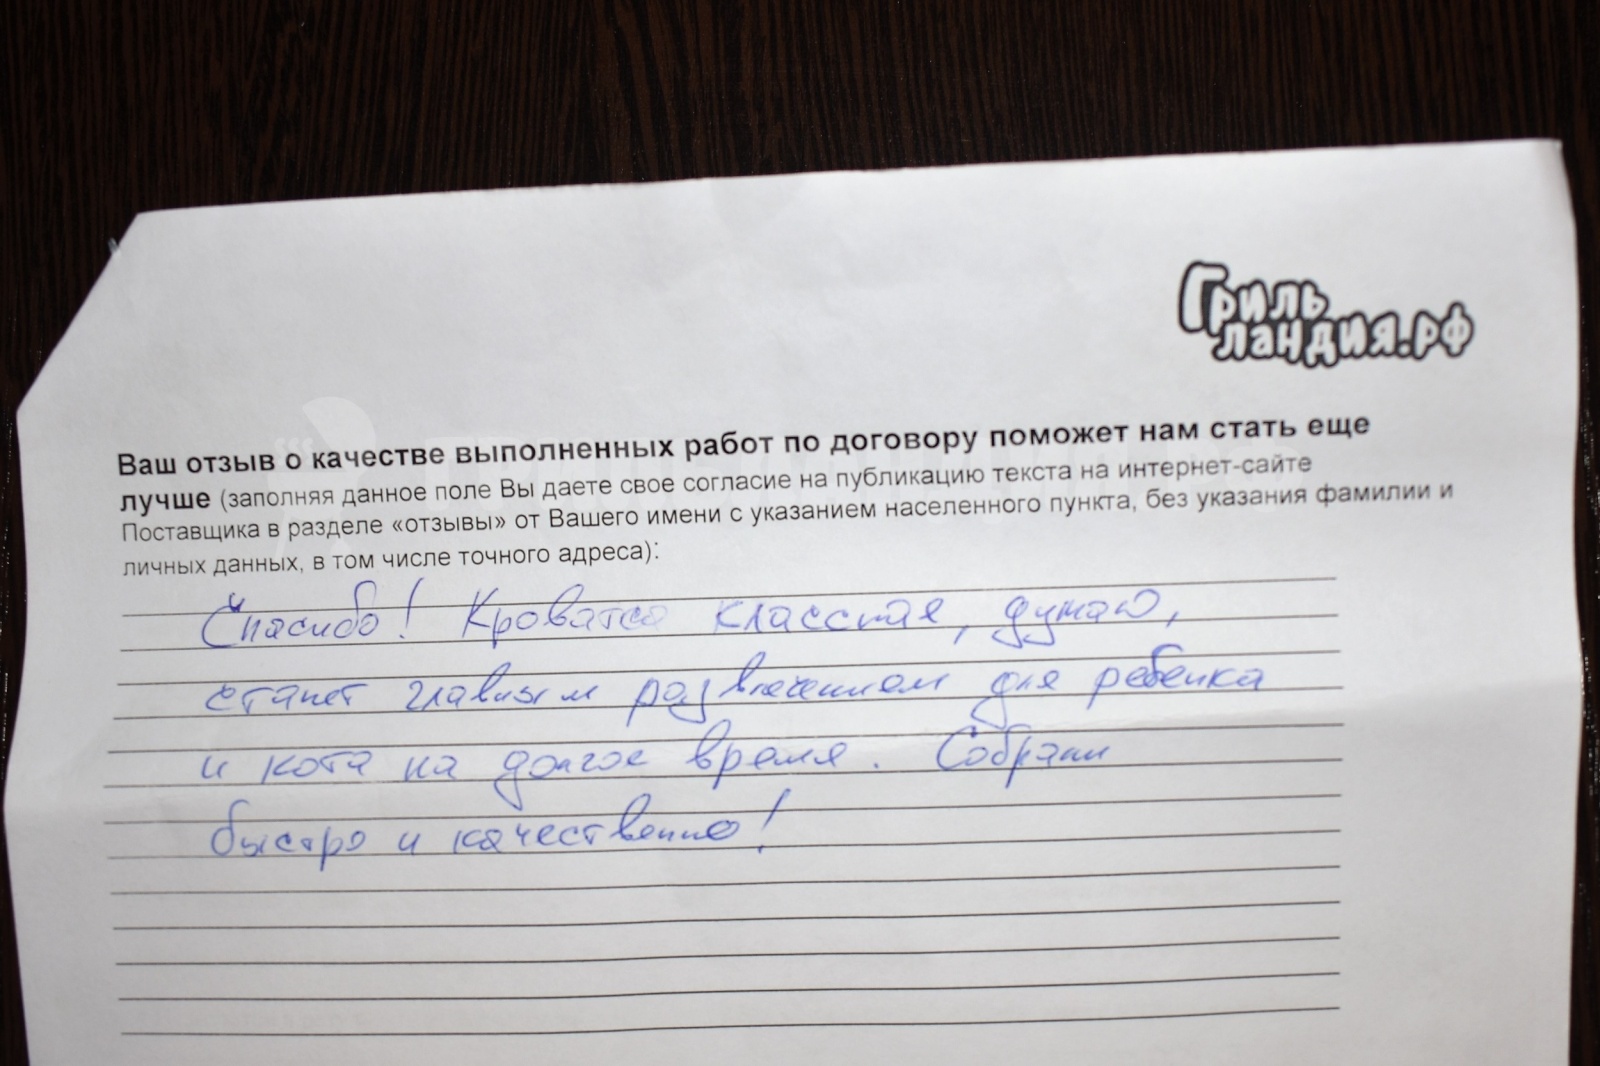 Гриль
ландия.рф
Ваш отзыв о качестве выполненных работ по договору поможет нам стать еще
лучше (заполняя данное поле Вы даете свое согласие на публикацию текста на интернет-сайте
Поставщика в разделе «отзывы» от Вашего имени с указанием населенного пункта, без указания фамилии и
личных данных, в том числе точного адреса):
Спасибо! Кроватка классная, думаю,
станет главным развлечением для ребенка
и кота на долгое время. Собрали
быстро и качественно!